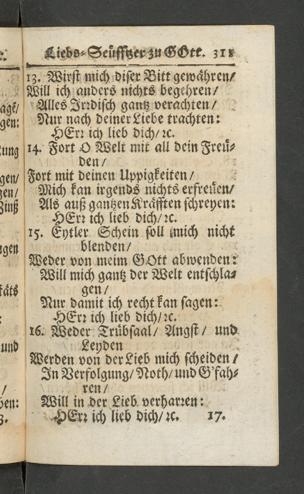 Liebs-Seüfftzer zu GOtt. 311
13. Wirst mich diser Bitt gewähren/
Will ich anders nichts begehren/
Alles Irrdisch gantz verachten/
Nur nach deiner Liebe trachten:
HErꝛ ich lieb dich/ ꝛc.
14. Fort O Welt mit all dein Freü-
den/
Fort mit deinen Uppigkeiten/
Mich kan irgends nichts erfreüen/
Als auß gantzen Kräfften schreyen:
HErꝛ ich lieb dich/ ꝛc.
15. Eytler Schein soll mich nicht
blenden/
Weder von meim GOtt abwenden:
Will mich gantz der Welt entschla-
gen/
Nur damit ich recht kan sagen:
HErꝛ ich lieb dich/ ꝛc.
16. Weder Trübsaal/ Angst/ und
Leyden
Werden von der Lieb mich scheiden/
In Verfolgung/ Noth/ und G'fah-
ren/
Will in der Lieb verharꝛen:
HErꝛ ich lieb dich/ ꝛc. 17.